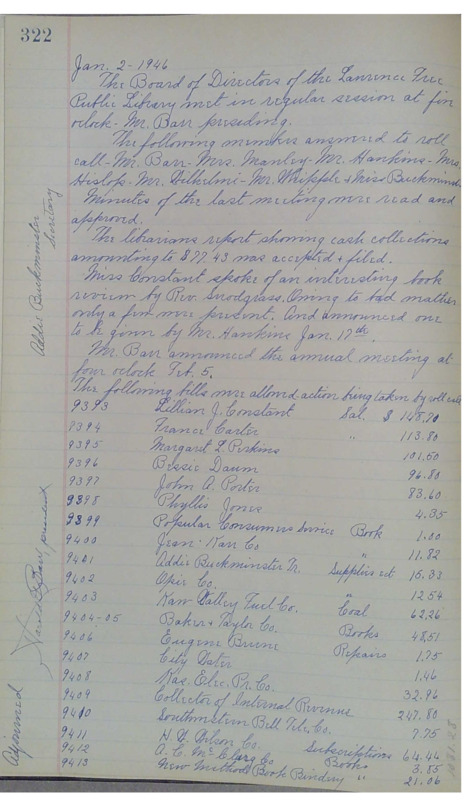 322
Jan. 2 - 1946
The Board of Directors of the Lawrence Free
Public Library met in regular session at five
oclock - Mr. Barr presiding.
The following members answered to roll
call - Mr. Barr - Mrs. Manley - Mr. Hankins - Mrs.
Hislop - Mr. - Mr. Whipple & Miss Buckminster
Minutes of the last meeting were read and
approved.
The librarians report showing cash collections
amounting to $77.43 was accepted & filed.
Miss Constant spoke of an interesting book
review by Rev. Snodgrass. Owing to bad weather
only a few were present. And announced one
to be given by Mr. Hankins Jan. 17th.
Mr. Barr announced the annual meeting at
four oclock Feb. 5.
The following bills were allowed action being taken by roll call
9393 Lillian J. Constant Sal. $ 148.90
9394 France Carter " 113.80
9395 Margaret L. Perkins 101.50
9396 Bessie Daum 96.80
9397 John A. Porter 83.60
9398 Phyllis Jones 4.35
9399 Popular Consumers Service Book 1.00
9400 Jean-Karr Co " 11.82
9401 Addie Buckminster Tr. Supplies ect 15.33
9402 Co. " 12.54
9403 Kaw Valley Fuel Co. Coal 62.26
9404-05 Baker & Taylor Co. Books 48.51
9406 Eugene Repairs 1.75
9407 City Water 1.46
9408 Kas. Elec. Pr. Co. 32.96
9409 Collector of Internal Revenue 247.80
9410 Southwestern Bell Tele. Co. 7.75
9411 H. W. Wilson Co. Subscriptions 64.44
9412 A. C. McClurg Co Books 3.85
9413 New Method Book Bindery " 21.06
Addie Buckminster
Secretary
president
Ajourned
1081.28